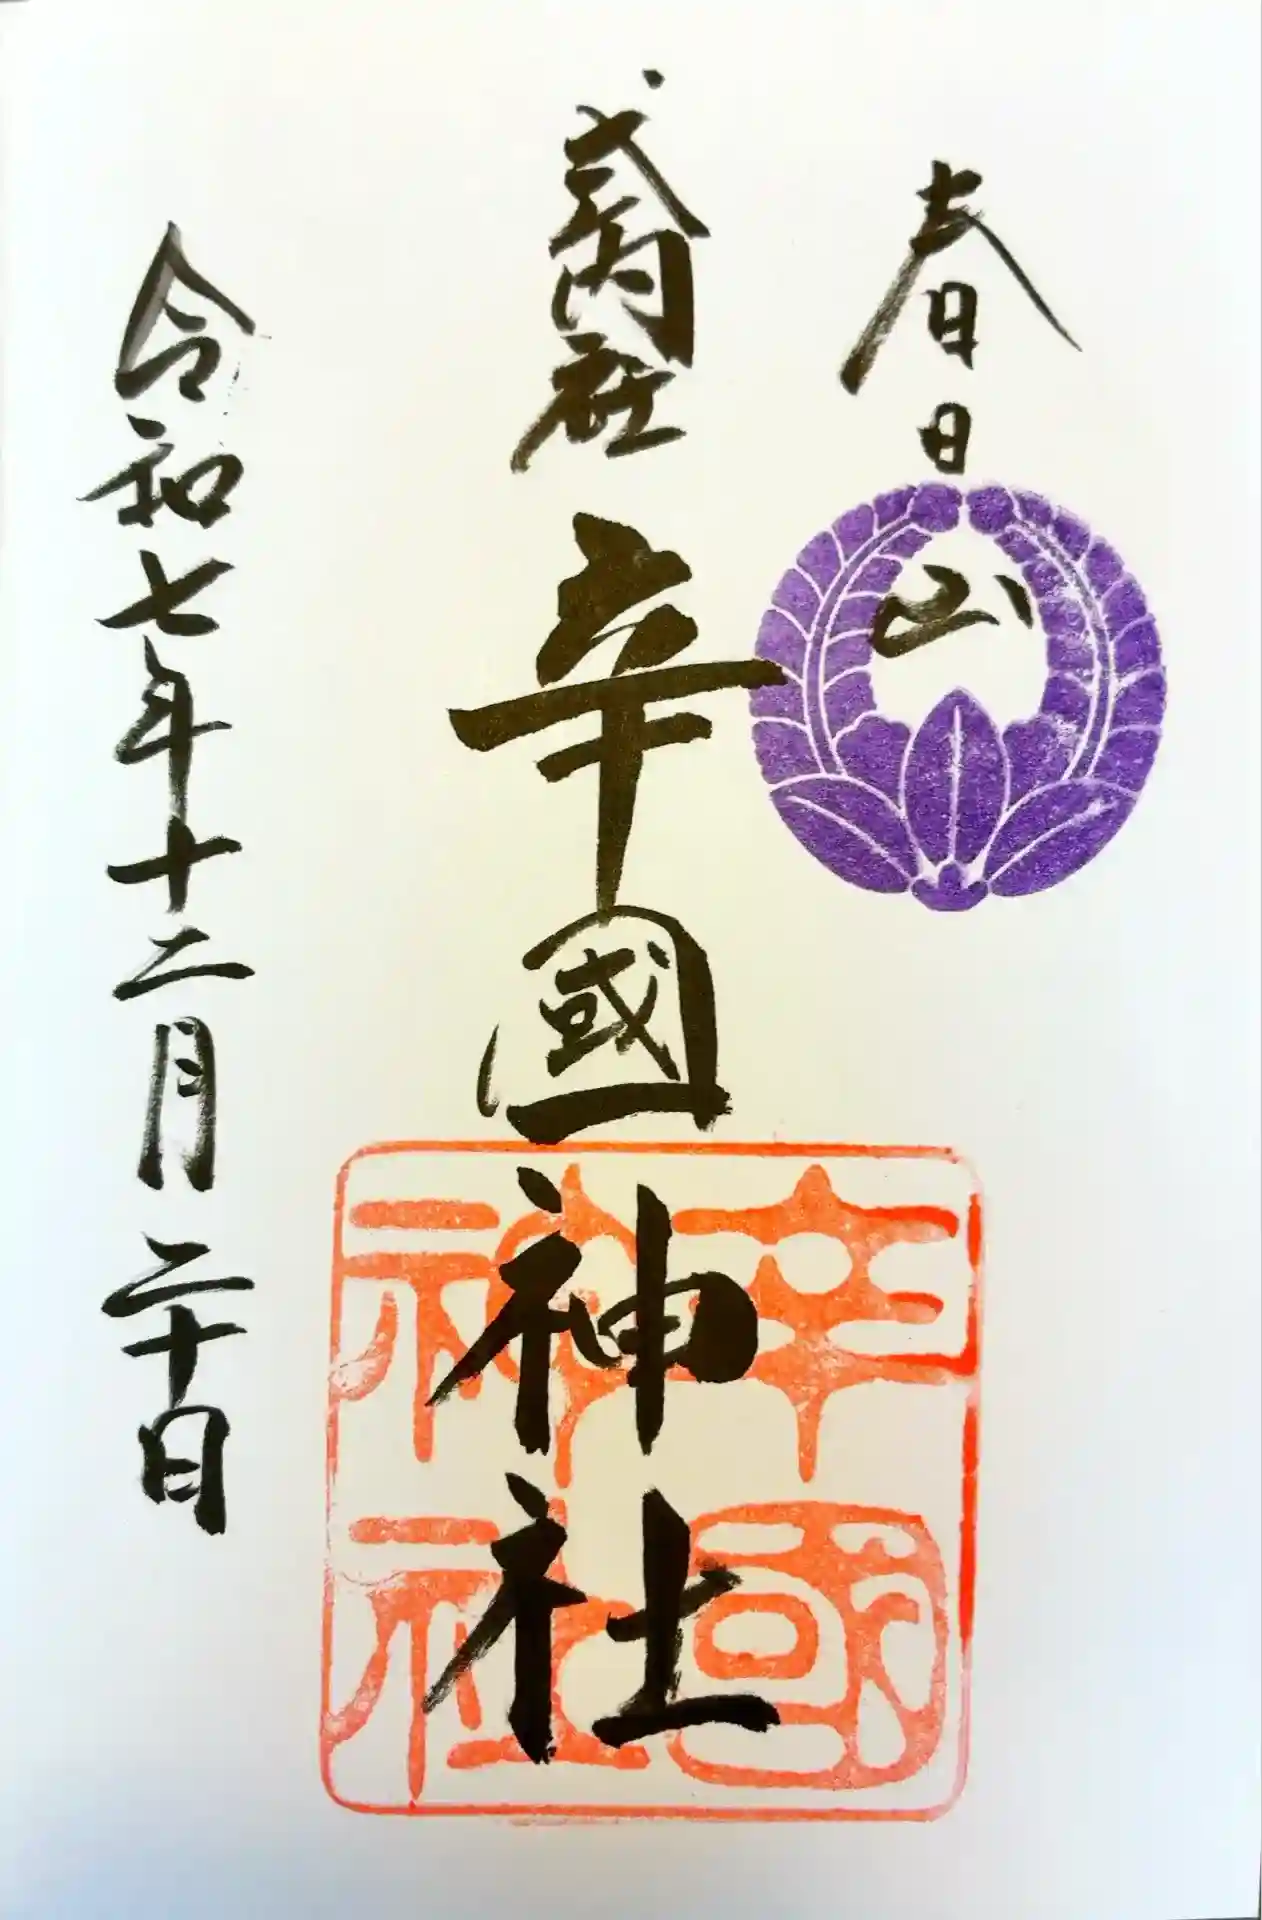 春日山
式内社
辛國神社
辛國神社
令和七年十二月二十日